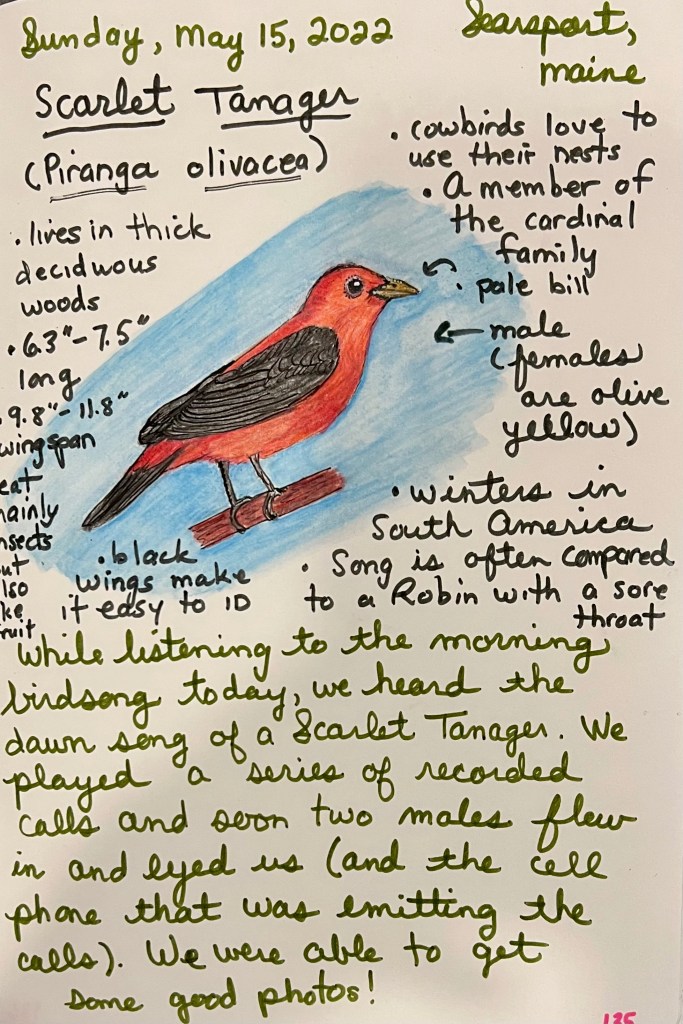 Sunday, May 15, 2022
Searsport,
Maine
Scarlet Tanager
(Piranga olivacea)
• lives in thick
deciduous
woods
• 6.3" - 7.5"
long
• 9.8" - 11.8"
wingspan
eat
mainly
insects
but
also
like
fruit
• black
wings make
it easy to ID
• cowbirds love to
use their nests
• A member of
the cardinal
family
• pale bill
← male
(females
are olive
yellow)
• winters in
South America
• Song is often compared
to a Robin with a sore
throat
While listening to the morning
birdsong today, we heard the
dawn song of a Scarlet Tanager. We
played a series of recorded
calls and soon two males flew
in and eyed us (and the cell
phone that was emitting the
calls). We were able to get
some good photos!
135